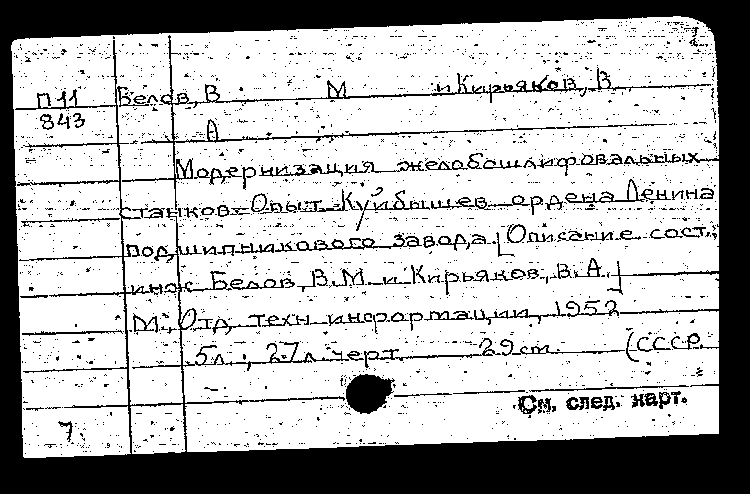 П 11 Белов, В М и Кирьяков, В
843 А
Модернизация желобошлифовальных
станков. Опыт Куйбышев ордена Ленина
подшипникового завода. [Описание сост.:
инж Белов, В. М. и Кирьяков, В. А.]
М., Отд. техн информации, 1952
5л.; 27л. черт. 29 см. (СССР.
См. след. карт.
7